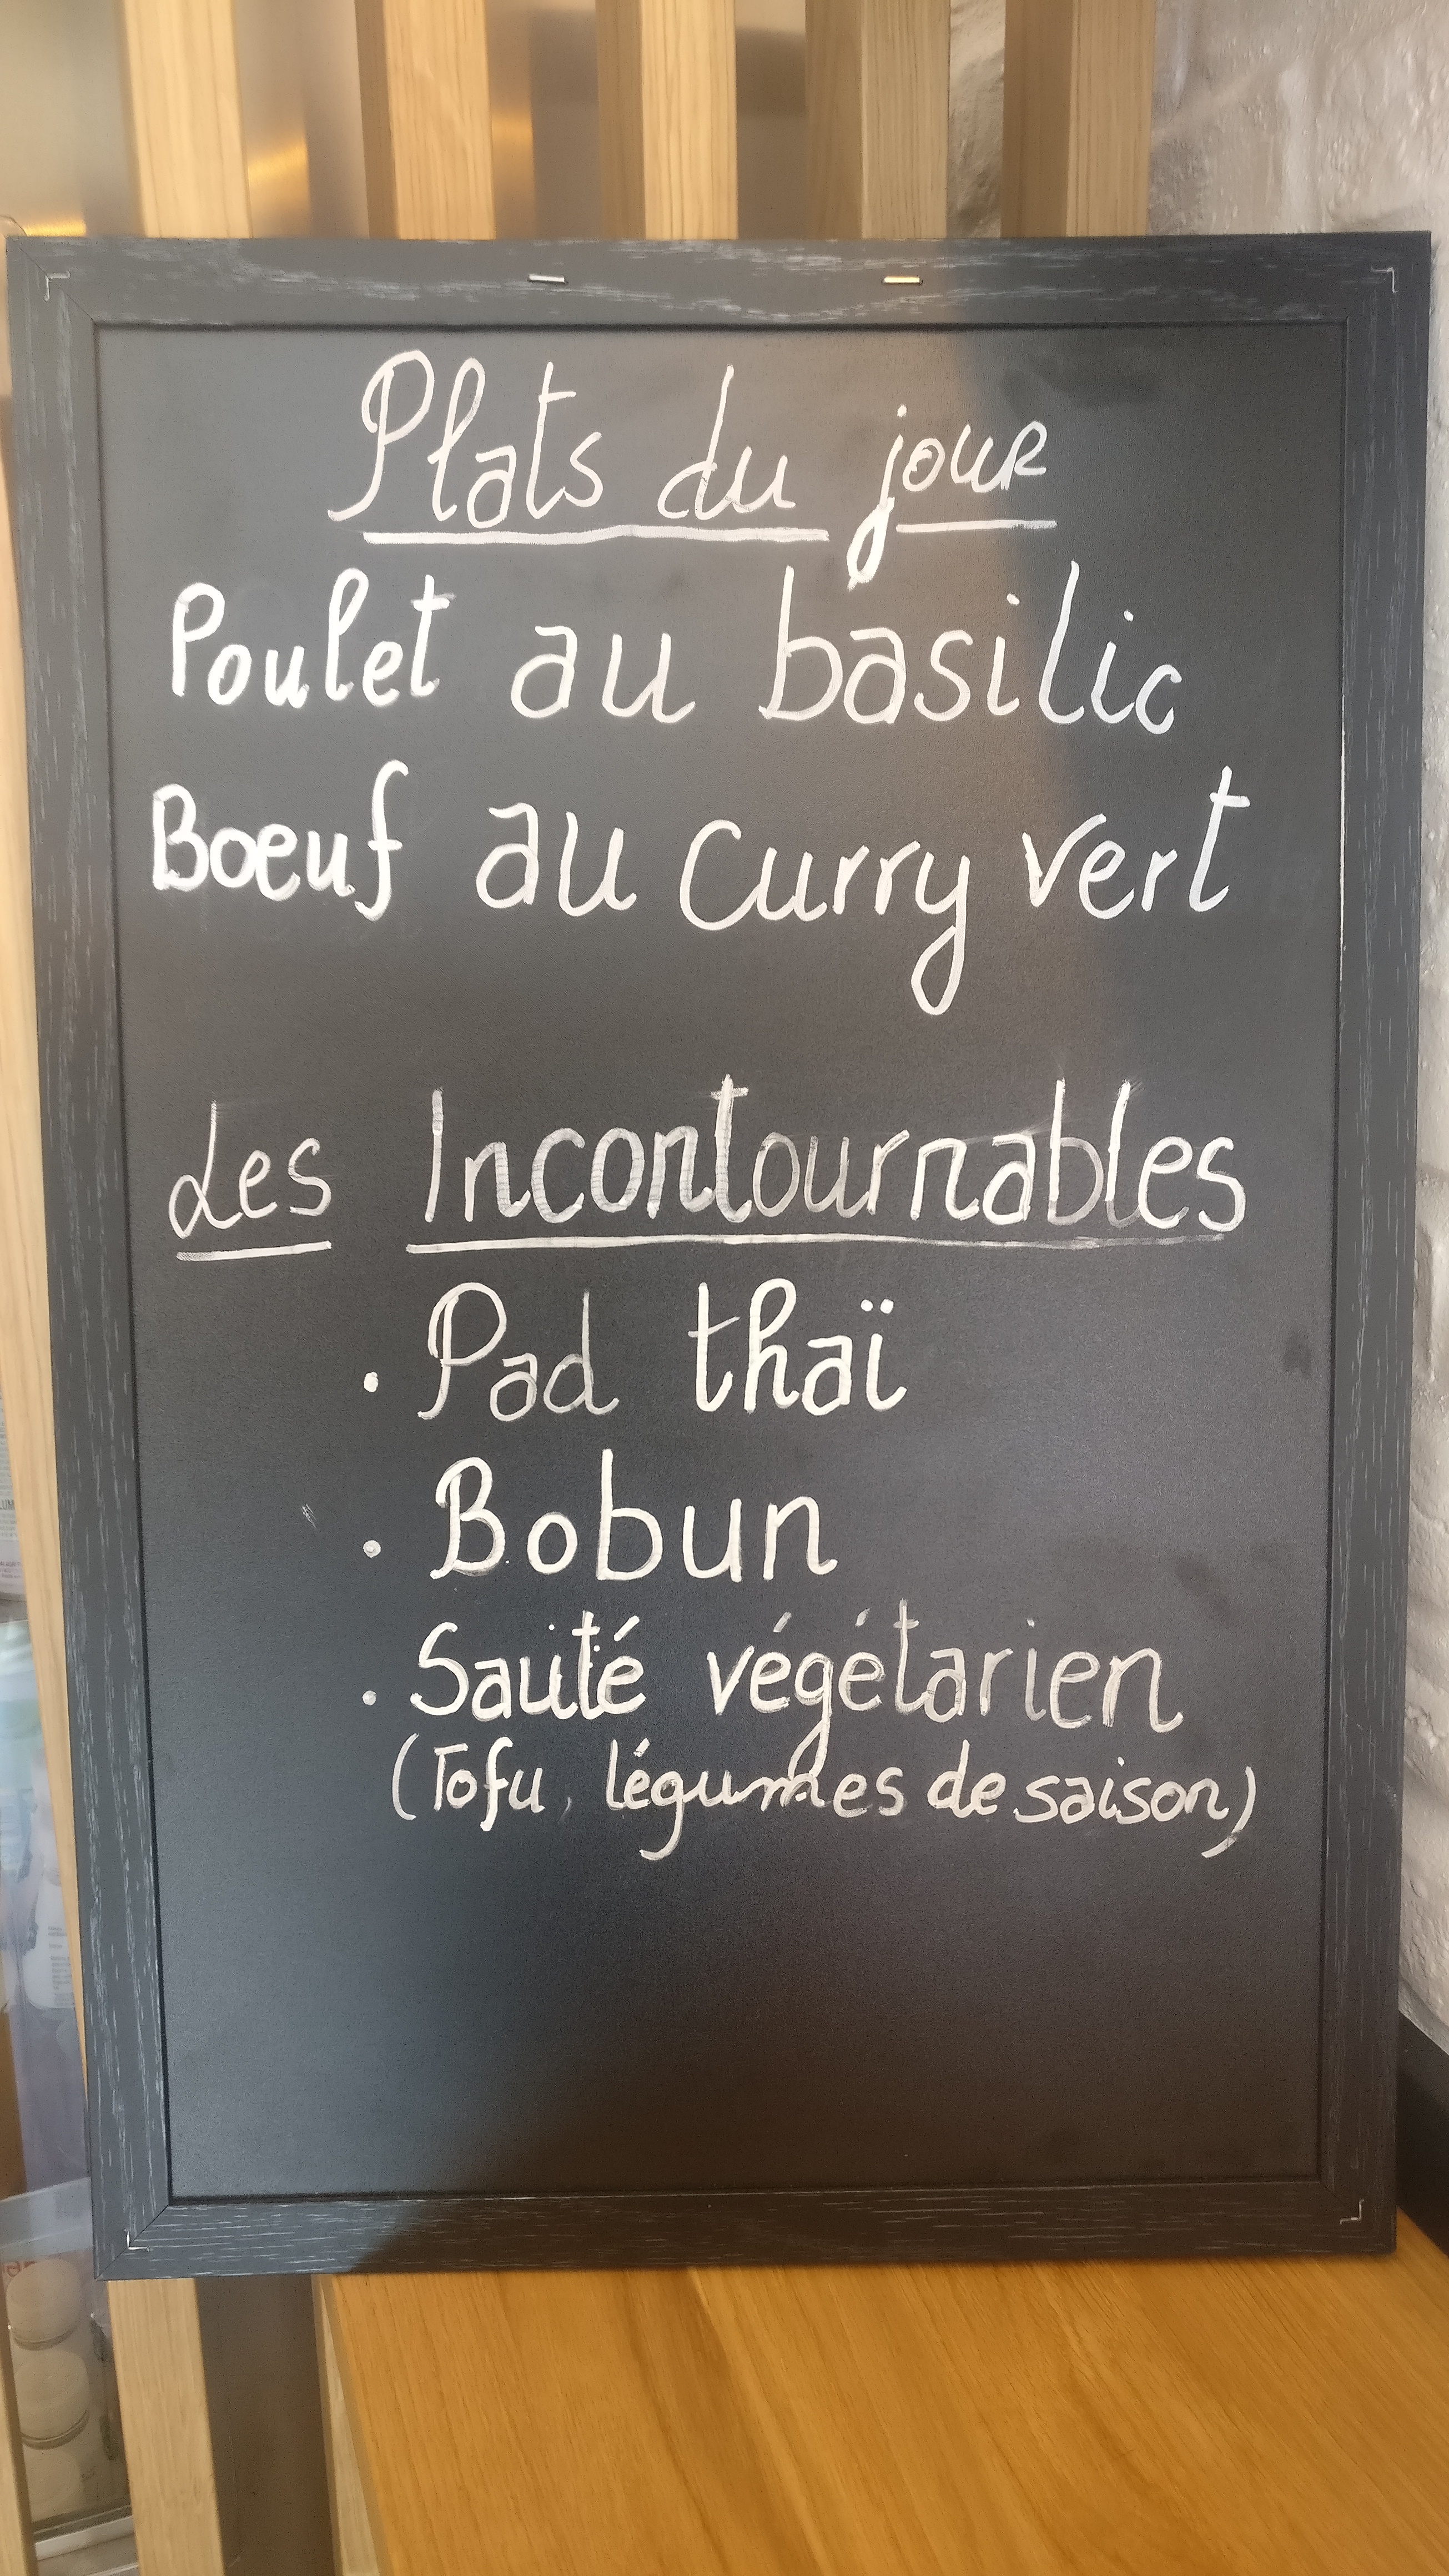 Plats du jour
Poulet au basilic
Boeuf au curry vert
Les Incontournables
. Pad thaï
. Bobun
. Sauté végétarien
(Tofu, légumes de saison)